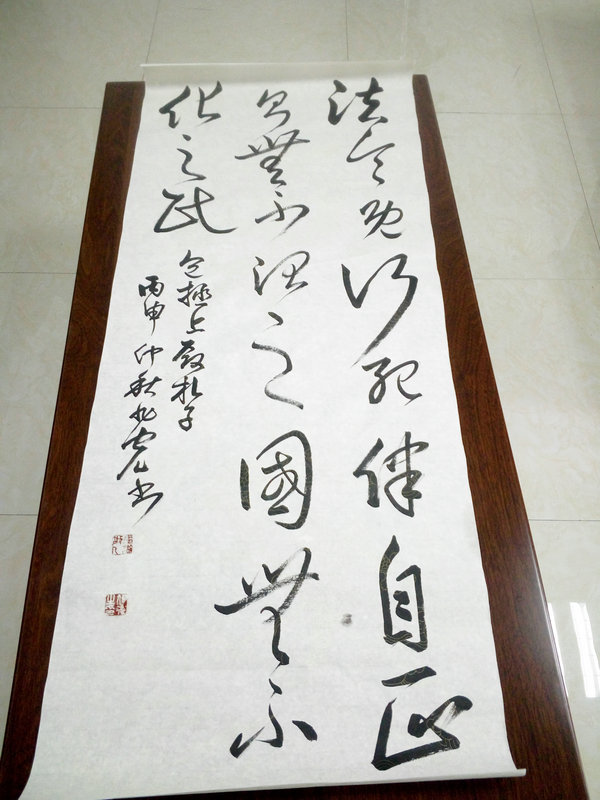 法令既行紀律自正
則無不治之國無不
化之民
包拯上殿札子
丙申仲秋书